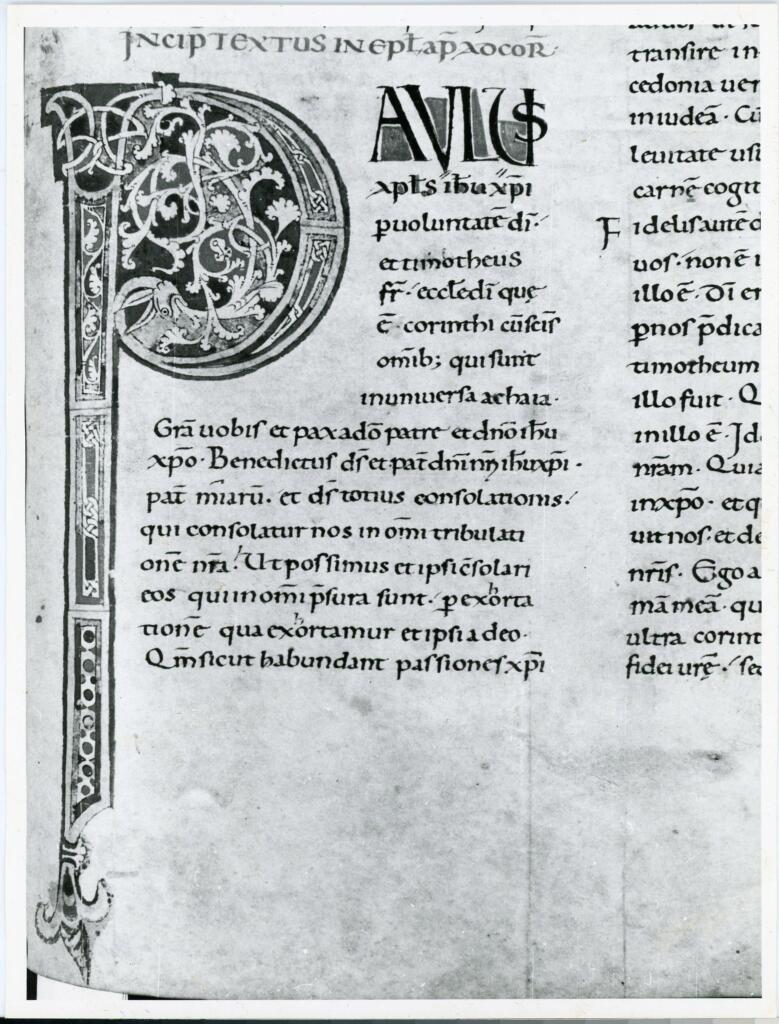 INCIP TEXTUS IN EPL̄A P̄A ADCOR̄
PAVLUS
xpl̄s ihu xp̄i
p̲uoluntatē dī·
et timotheus
fr̄· eccl̄e dī quę
ē· corinthi cū sc̄is
om̄ib; qui sunt
in uniuersa achaia·
Gr̄a uobis et pax a dō patre et dn̄o ihu
xp̄o· Benedictus ds̄ et pat̄ dn̄i nr̄i ihu xp̄i·
pat̄ mīarū· et ds̄ totius consolationis·
qui consolatur nos in om̄i tribulati
onē nr̄a· Ut possimus et ipsi c̄solari
eos qui in om̄i p̄sura sunt· p̲ exhorta
tionē qua exhortamur et ipsi a deo·
Qm̄ sicut habundant passiones xp̄i
transire in
cedonia uen
in iudeā· Cū
leuitate usu
carnē cogit
Fidelis autē d
uos· non ē i
illo ē· Dī en
p̲ nos p̄dica
timotheum
illo fuit· Q
in illo ē· Id
nr̄am· Quia
in xp̄o· et q
uit nos· et de
nr̄is· Ego a
mā meā· qu
ultra corint
fidei ur̄ę· sed